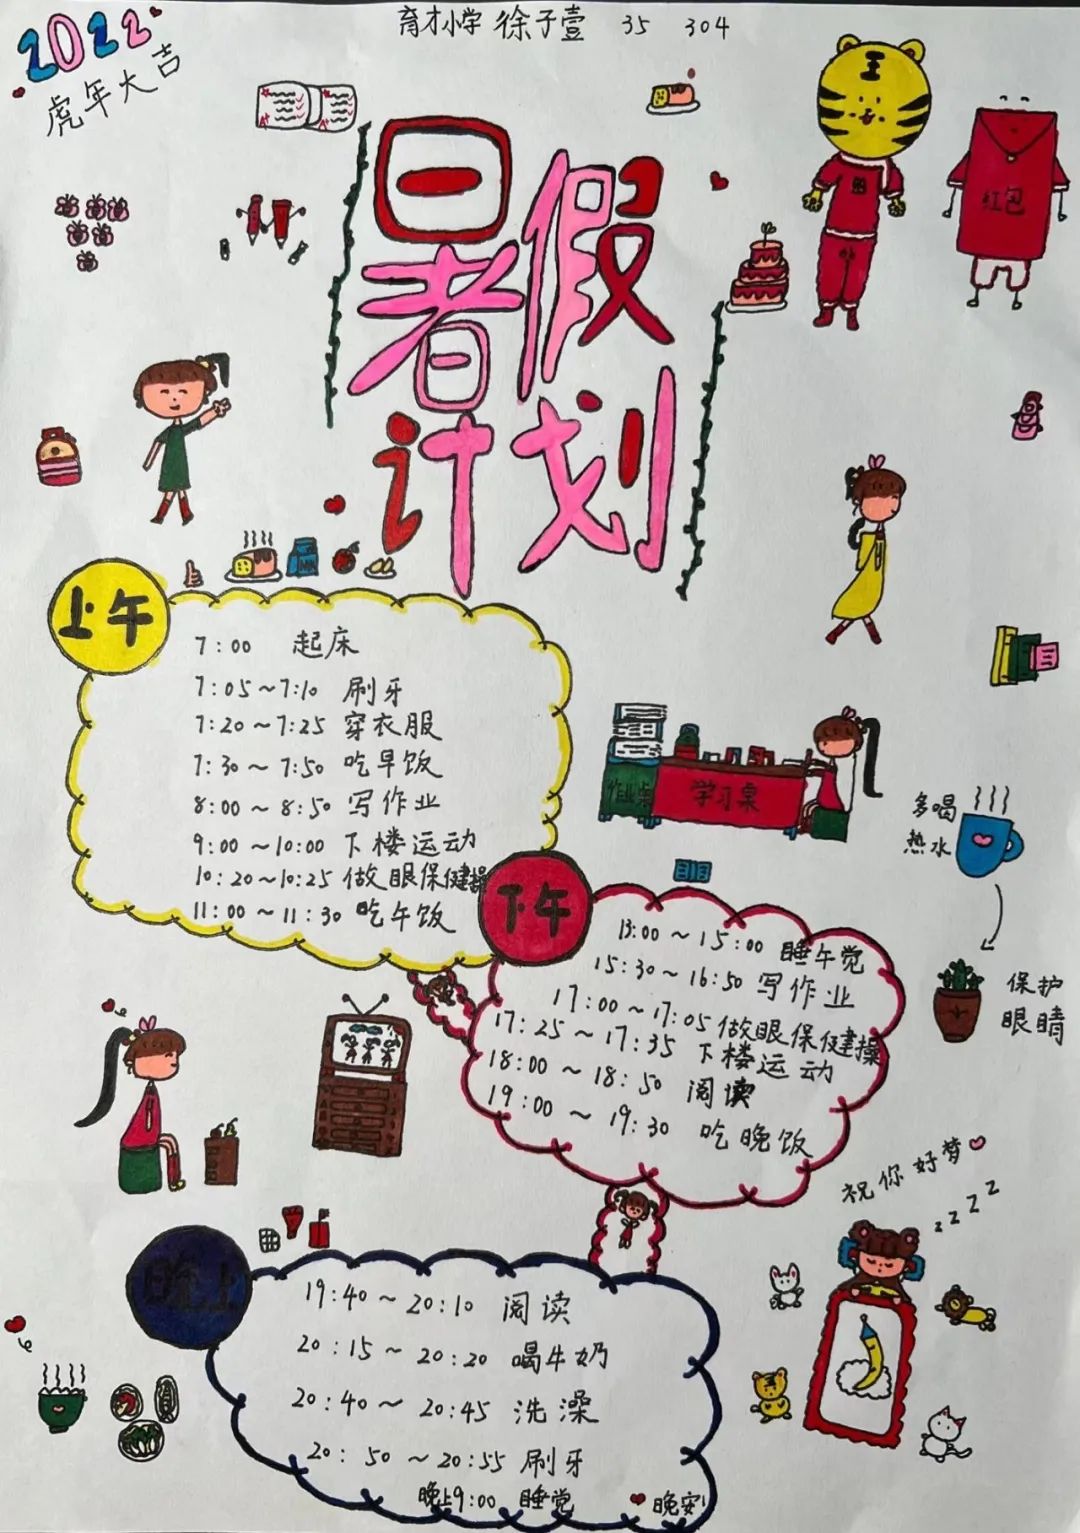 育才小学 徐子壹 35 304
2022
虎年大吉
暑假
计划
红包
上午
7:00 起床
7:05~7:10 刷牙
7:20~7:25 穿衣服
7:30~7:50 吃早饭
8:00~8:50 写作业
9:00~10:00 下楼运动
10:20~10:25 做眼保健操
11:00~11:30 吃午饭
作业桌
学习桌
多喝
热水
保护
眼睛
下午
13:00~15:00 睡午觉
15:30~16:50 写作业
17:00~17:05 做眼保健操
17:25~17:35 下楼运动
18:00~18:50 阅读
19:00~19:30 吃晚饭
祝你好梦
zzzz
晚上
19:40~20:10 阅读
20:15~20:20 喝牛奶
20:40~20:45 洗澡
20:50~20:55 刷牙
晚上9:00 睡觉
晚安!